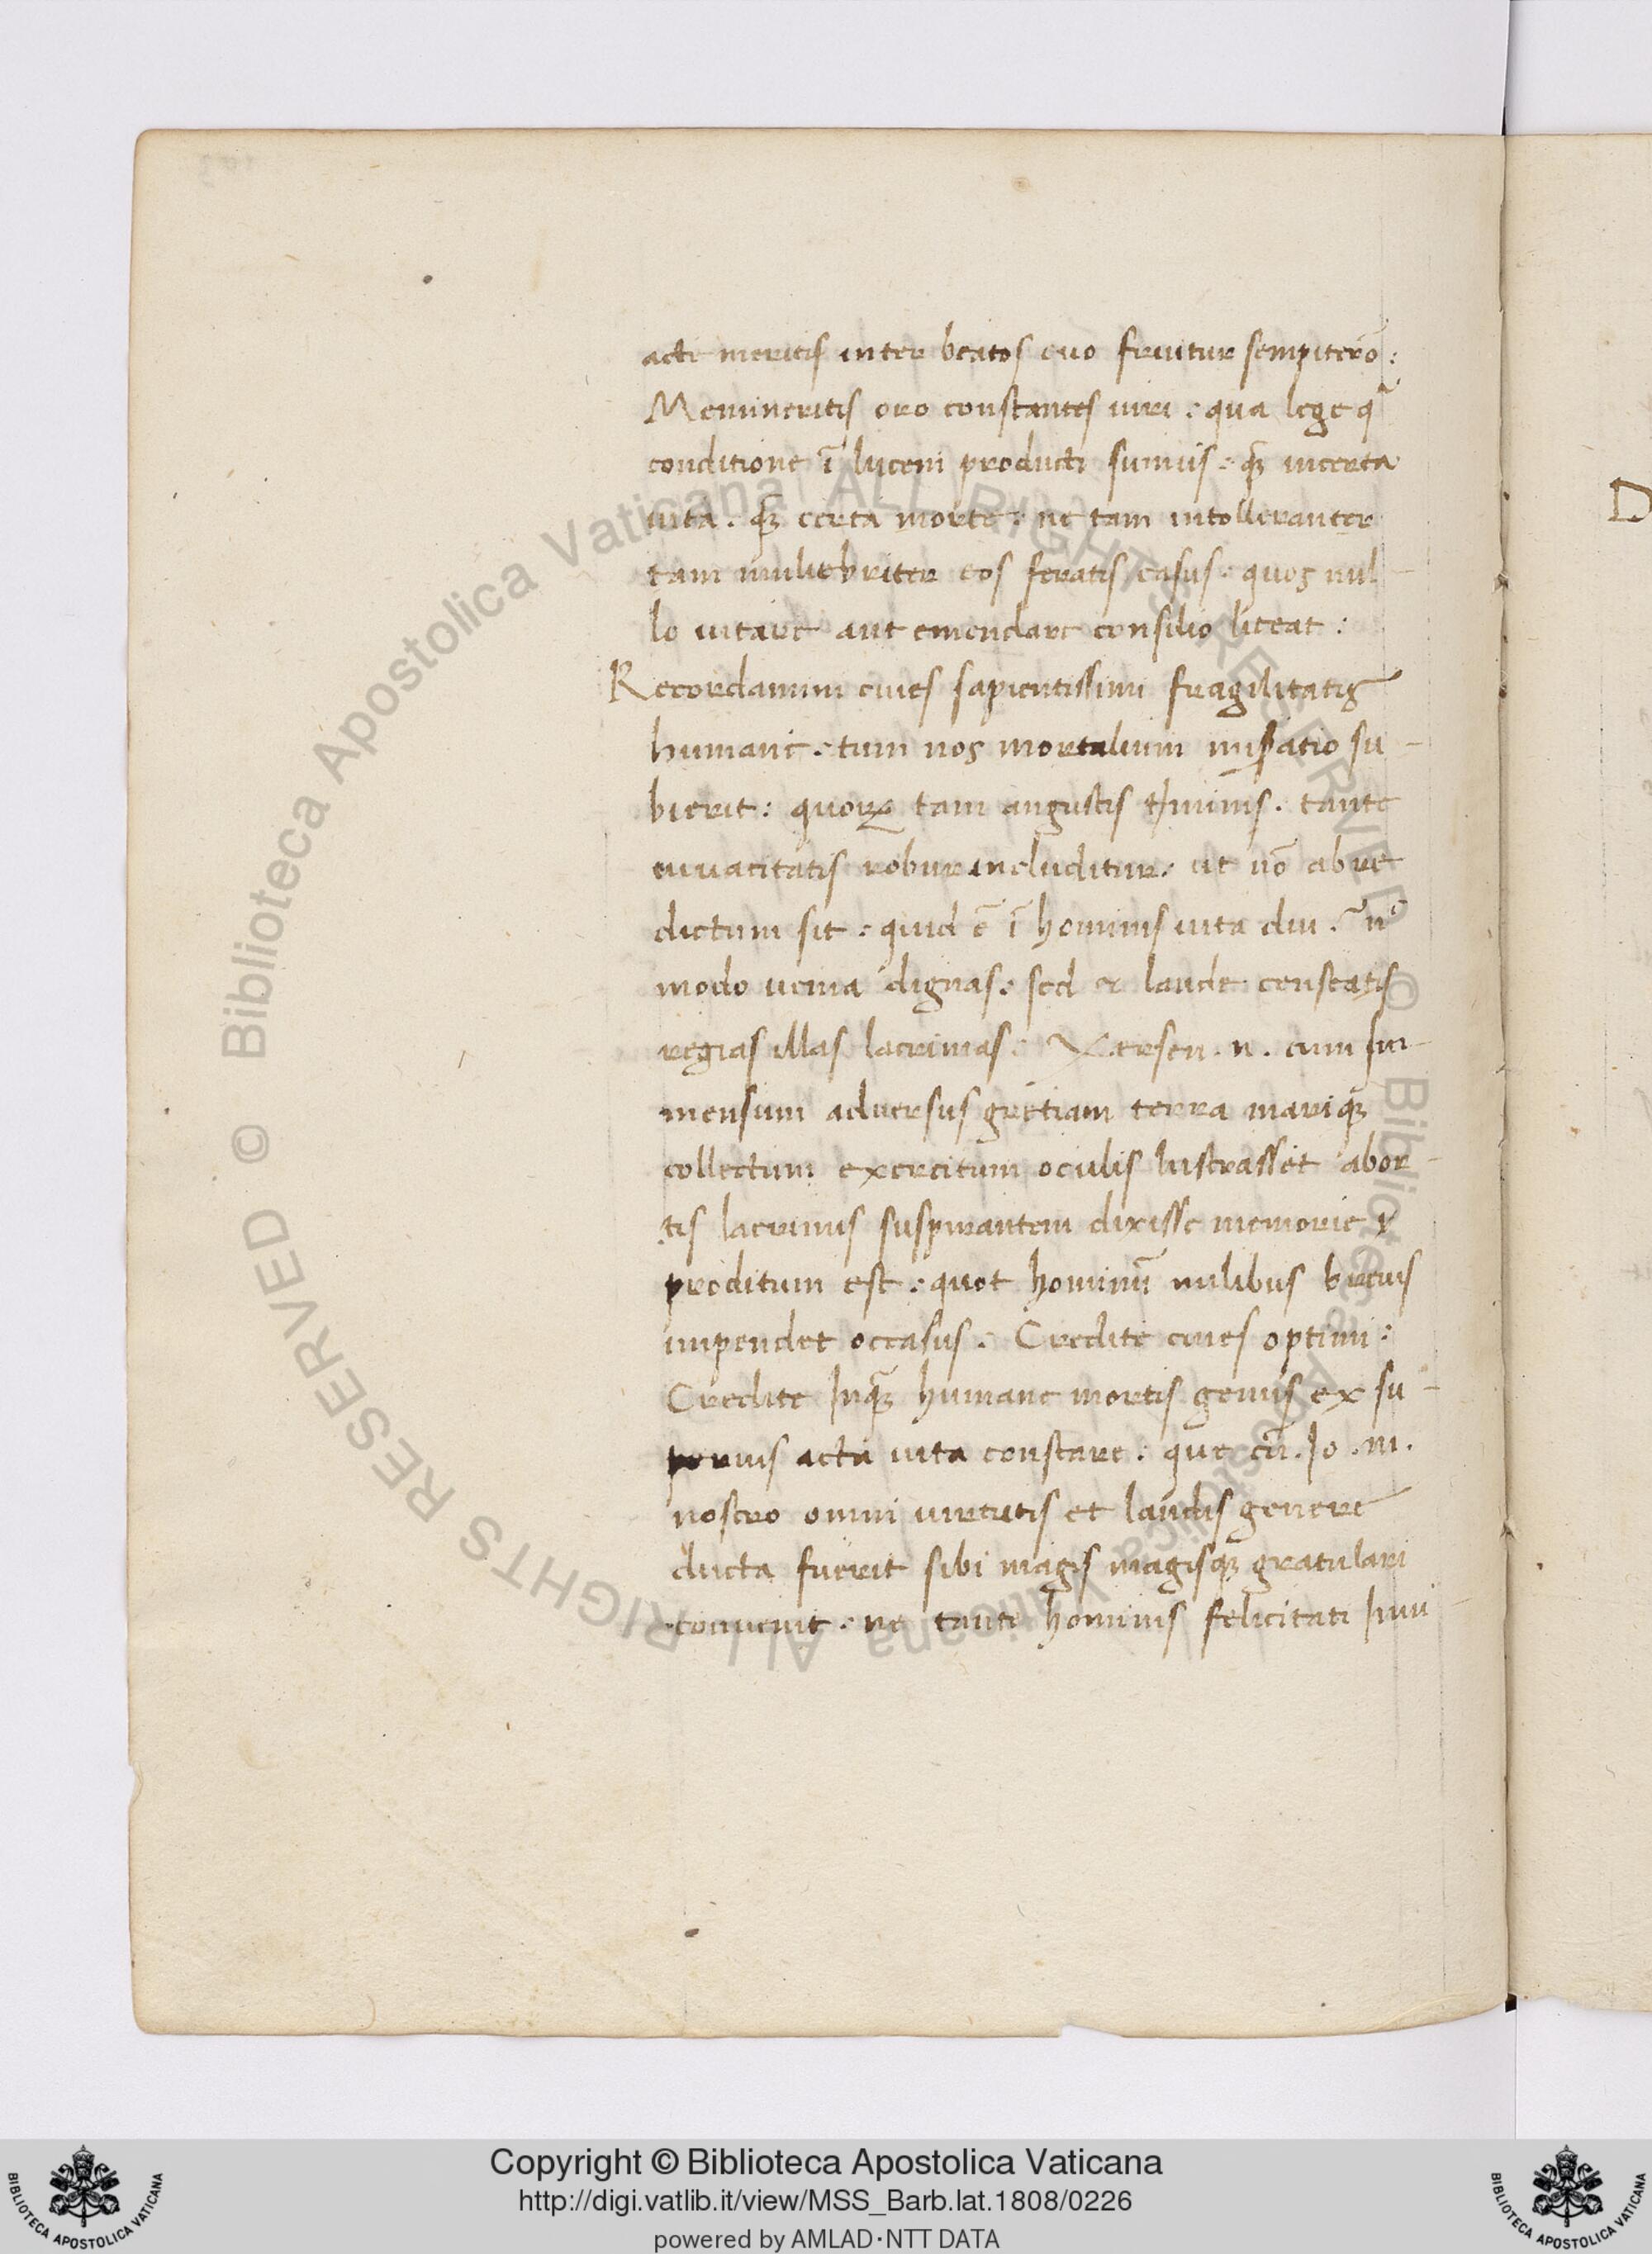 acte meritis inter beatos euo fruitur sempiterō:
Memineritis oro constantes uiri: qua lege q̄
conditione ī lucem producti sumus: qȝ incerta
uita. qȝ certa morte: ne tam intolleranter
tam muliebriter eos feratis casus: quos nul-
lo uitare aut emendare consilio liceat:
Recordamini ciues sapientissimi fragilitatis
humane: tum nos mortalium miſatio su-
bierit: quoꝝ tam angustis tīminis. tante
uiuacitatis robur includitur: ut nō ab re
dictum sit: quid ē ī hominis uita diu. nō
modo uenia dignas: sed & laude censeatis
regias illas lacrimas: Xersen. n. cum Im-
mensum aduersus gretiam terra mariqȝ
collectum exercitum oculis lustrasset abor-
tis lacrimis suspirantem dixisse memorie
proditum est: quot hominū milibus breuis
impendet occasus: Credite ciues optimi:
Credite Inqȝ humane mortis genus ex su-
perius acta uita constare: que cū. Io. m.
nostro omni uirtutis et laudis genere
ducta fuerit sibi magis magisqȝ gratulari
conuenit: ne tanti hominis felicitati Inui-
D
© Biblioteca Apostolica Vaticana ALL RIGHTS RESERVED
© Biblioteca Apostolica Vaticana ALL RIGHTS RESERVED
Copyright © Biblioteca Apostolica Vaticana
http://digi.vatlib.it/view/MSS_Barb.lat.1808/0226
powered by AMLAD·NTT DATA
BIBLIOTECA APOSTOLICA VATICANA
BIBLIOTECA APOSTOLICA VATICANA